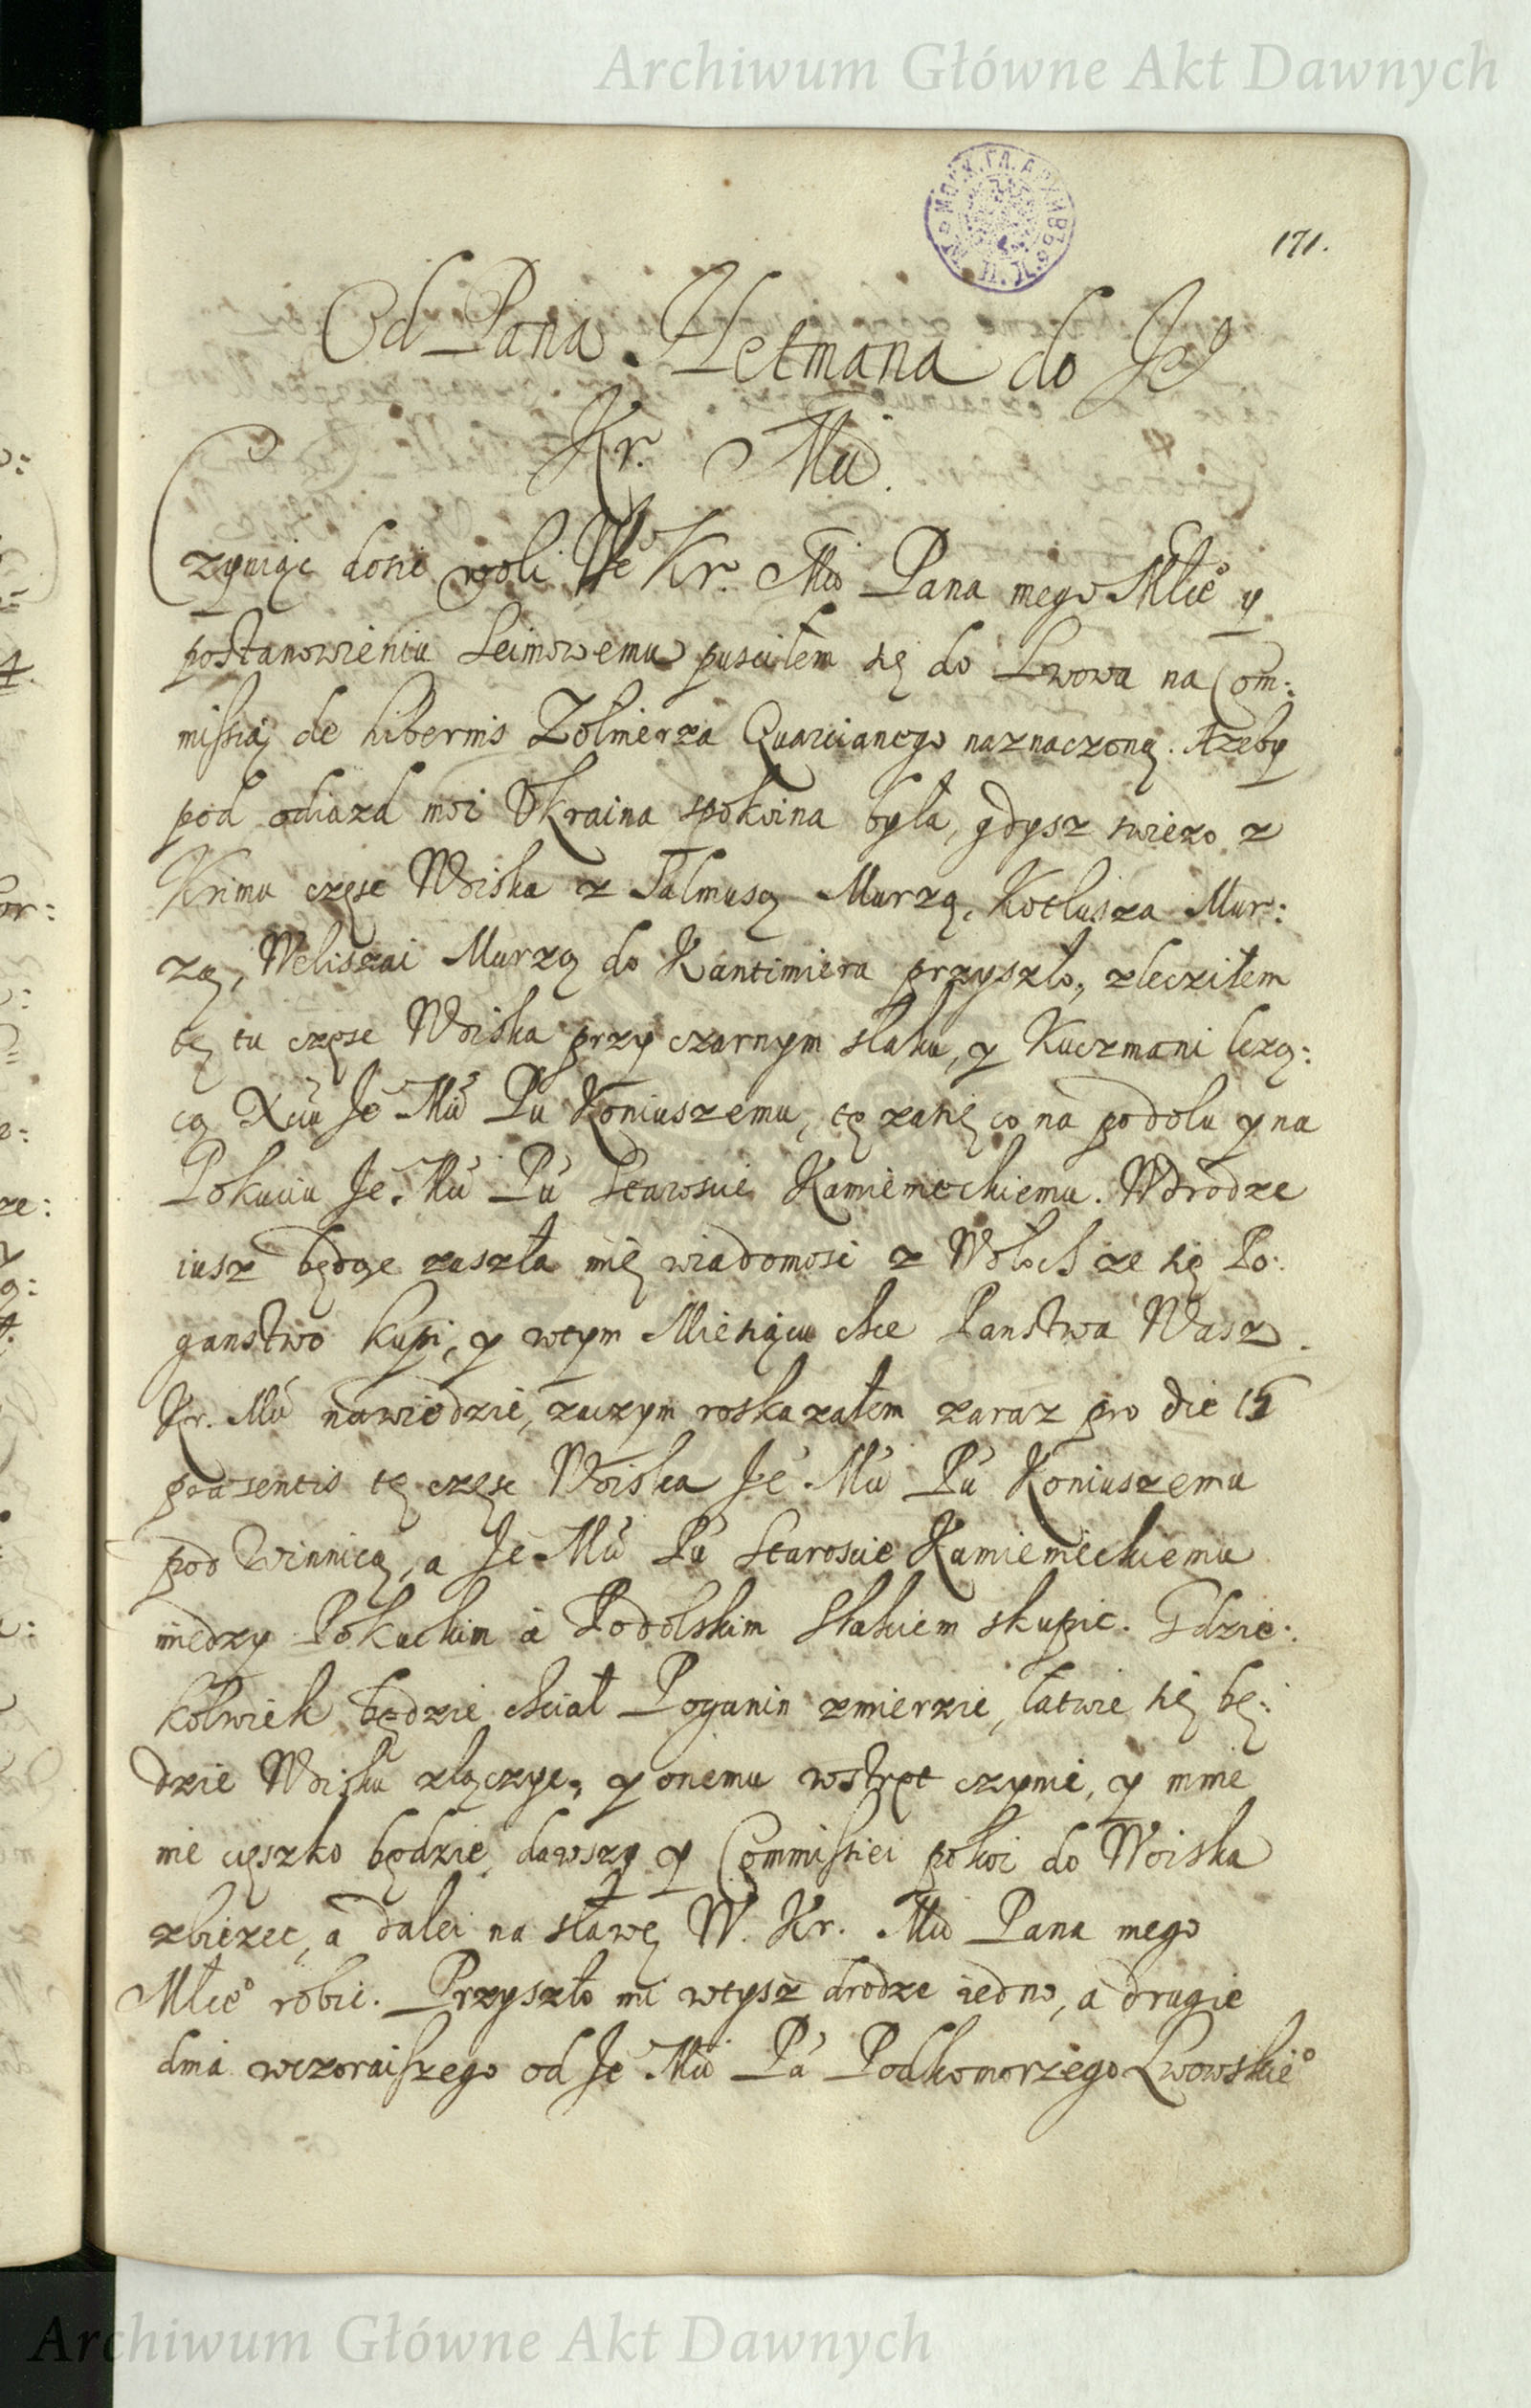 Archiwum Główne Akt Dawnych
171.
Od Pana Hetmana do Je⁰
Kr. Mći.
Czyniąc dosić woli We Kr. Mći Pana mego Młte⁰ y
postanowieniu Seimowemu pusciłem się do Lwowa na Com:
missią de hibernis Zołnierza Quarcianego naznaczoną. Azeby
pod odiazd moi Ukraina spokoina była, gdysz swiezo z
Krimu częsc Woiska z Salmusą Murzą, Kotlusza Mur:
zą, Weliszai Murzą do Kantimira przyszło, zleciłem
tę tu częsc Woiska przy czarnym slaku, y Kuczmani lezą:
cą Xciu Je Mći Pu Koniuszemu, tę zasię co na podolu y na
Pokuciu Je Mći Pu Staroscie Kamienieckiemu. W drodze
iusz będąc zaszła mię wiadomosc z Wołoch ze się Po:
ganstwo kupi, y wtym Miesiącu chce Panstwa Wasz.
Kr. Mći nawiedzić, zaczym roskazałem zaraz pro die 15
praesentis tę częsc Woiska Je Mći Pu Koniuszemu
pod Winnicą, a Je Mći Pu Staroscie Kamienieckiemu
miedzy Pokuckim a Podolskim Slakiem skupic. Gdzie:
kolwiek będzie chciał Poganin zmierzic, łatwie się bę:
dzie Woisku złączyc, y onemu wstręt czynić, y mnie
nie cięszko będzie, dawszy y Commissiei pokoi do Woiska
zbiezec, a dalei na sławę W. Kr. Mći Pana mego
Młte⁰ robic. Przyszło mi wtysz drodze iedno, a drugie
dnia wczoraiszego od Je Mći Pa Podkomorzego Lwowskie⁰
Archiwum Główne Akt Dawnych